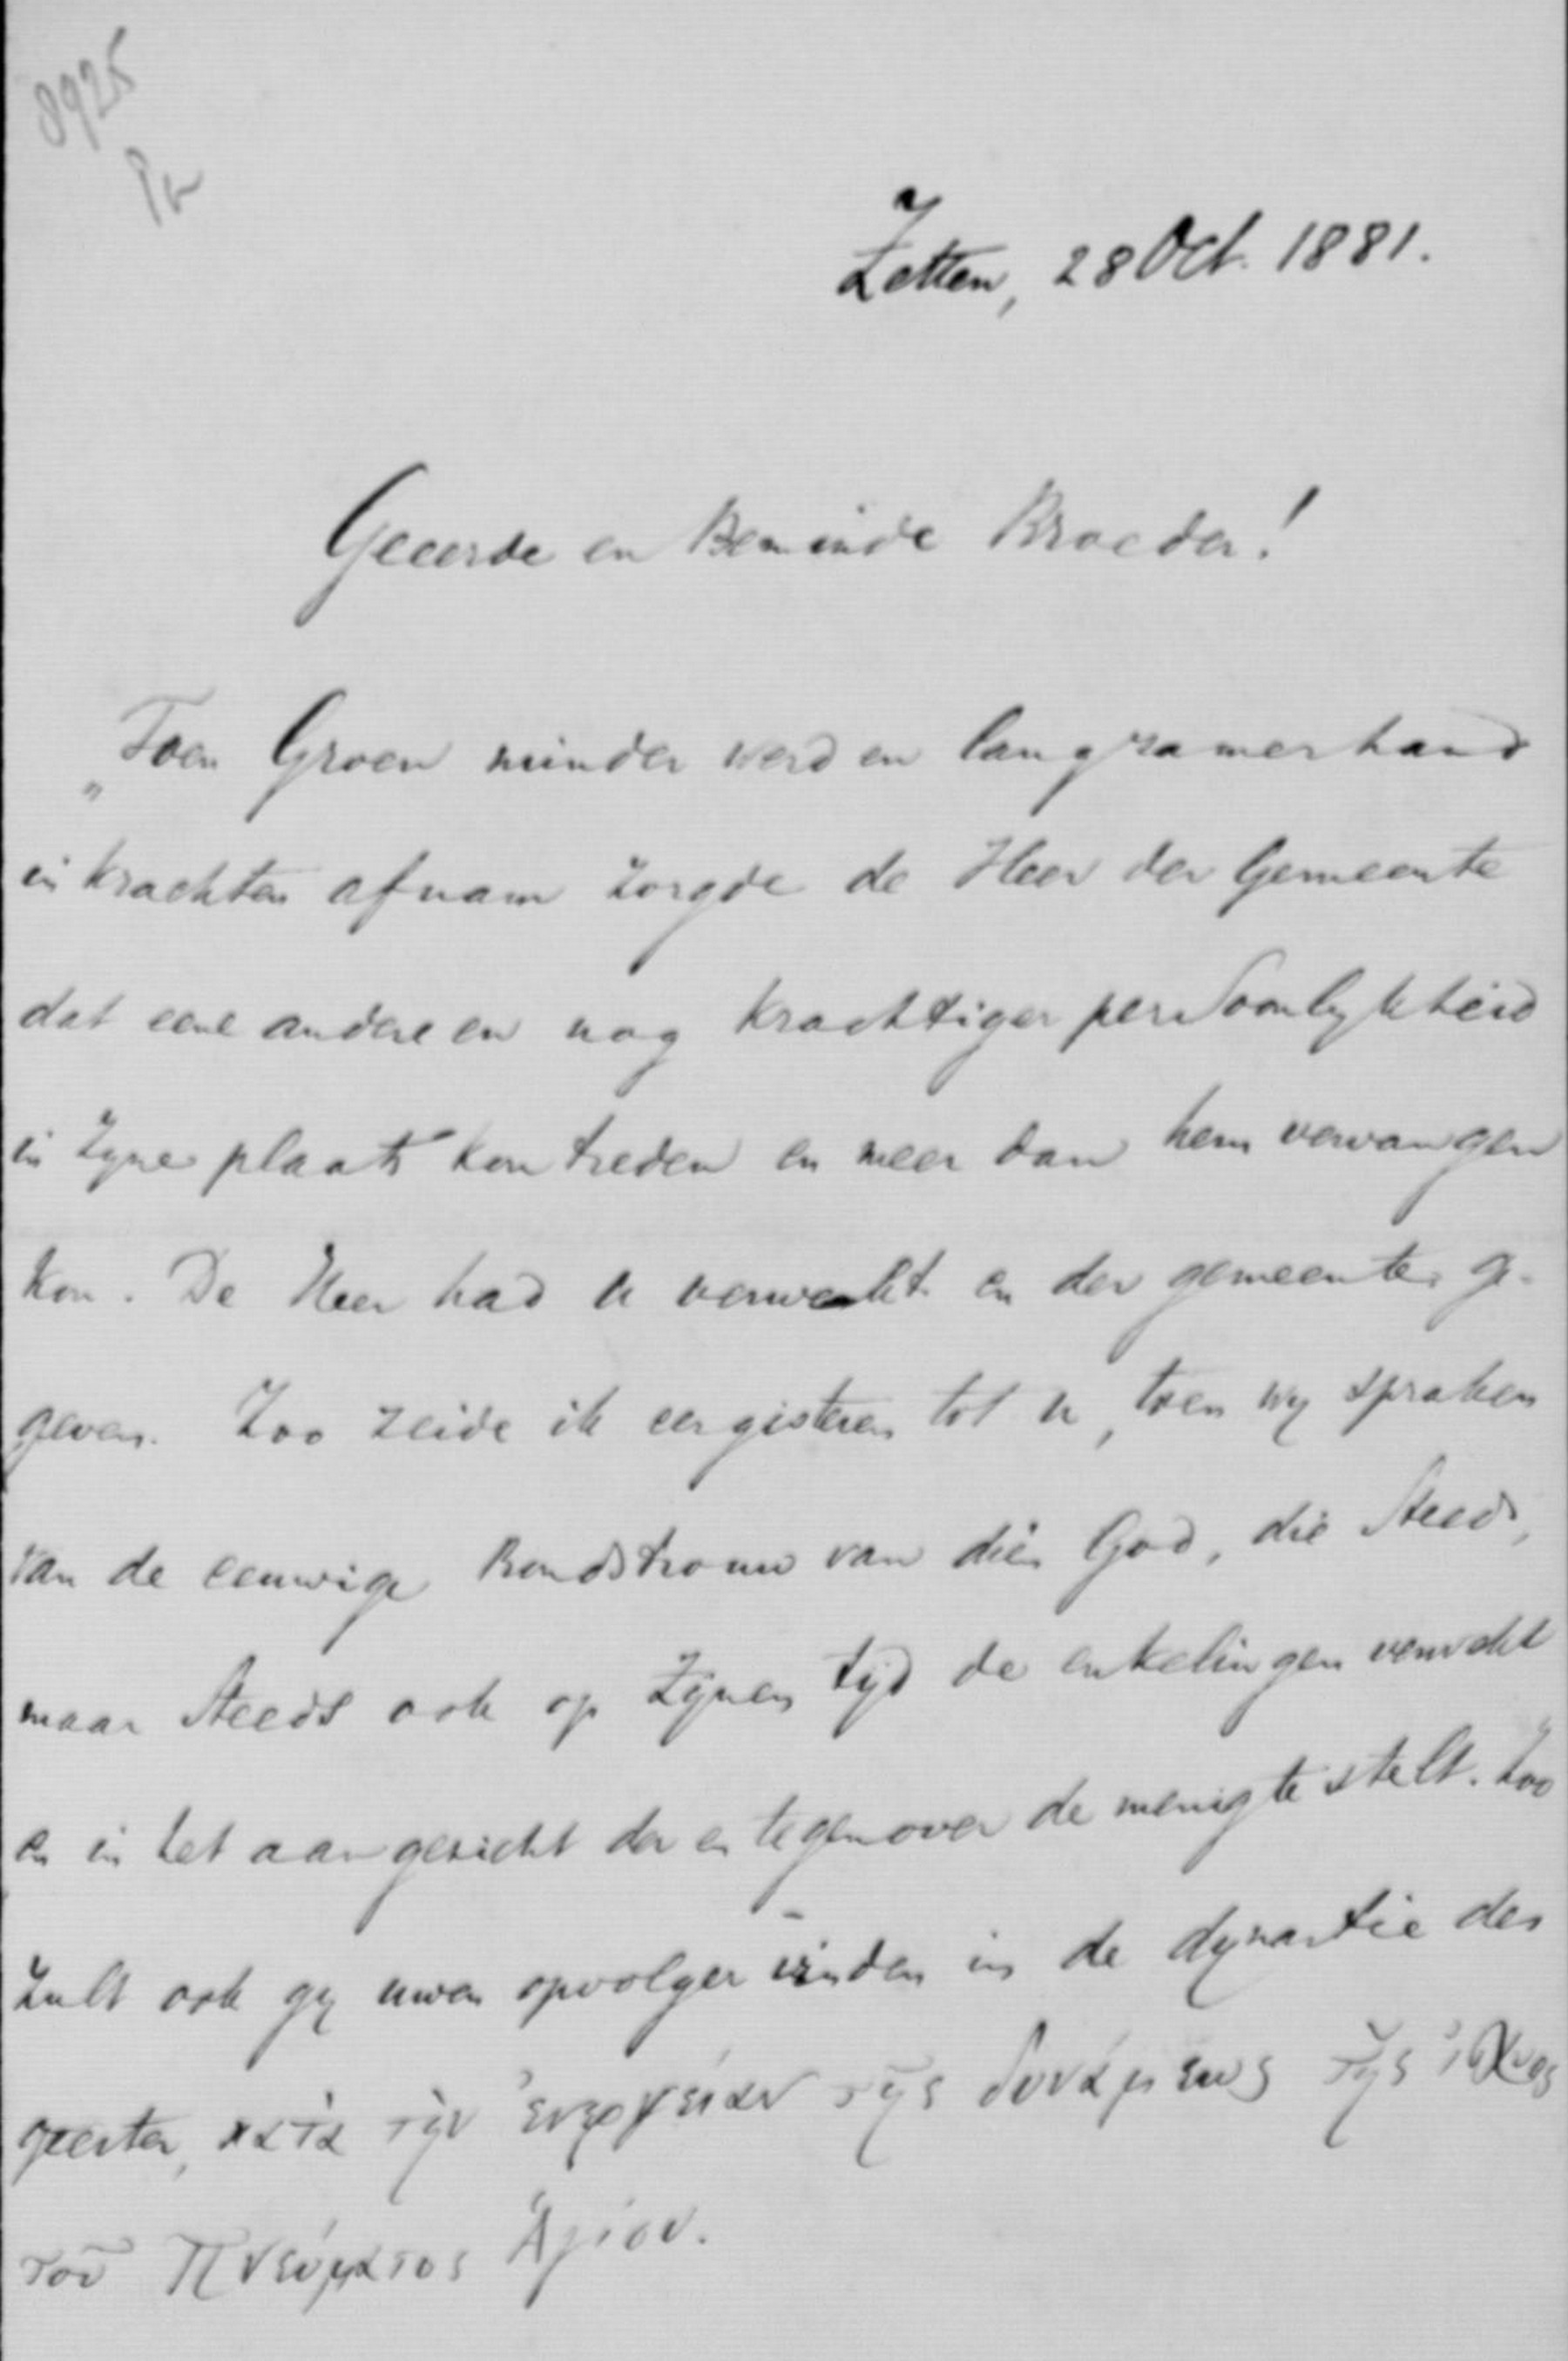 8925
Zetten, 28 Oct. 1881.
Geëerde en Beminde Broeder!
„Toen Groen minder werd en langzamerhand
in krachten afnam zorgde de Heer der Gemeente
dat eene andere en nog krachtiger persoonlykheid
in zyne plaats kon treden en meer dan hem vervangen
kon. De Heer had u verwekt en der gemeente ge-
geven. Zoo zeide ik eergisteren tot u, toen wy spraken
van de eeuwige Bondstrouw van dien God, die steeds,
maar steeds ook op Zynen tyd de enkelingen verwekt
en in het aangezicht der en tegenover de menigte stelt. Zoo
zult ook gy uwen opvolger vinden in de dynastie der
geesten, κατὰ τὴν ἐνεργείαν τῆς δυνάμεως τῆς ἰσχυος
τοῦ Πνεύματος Ἁγίου.